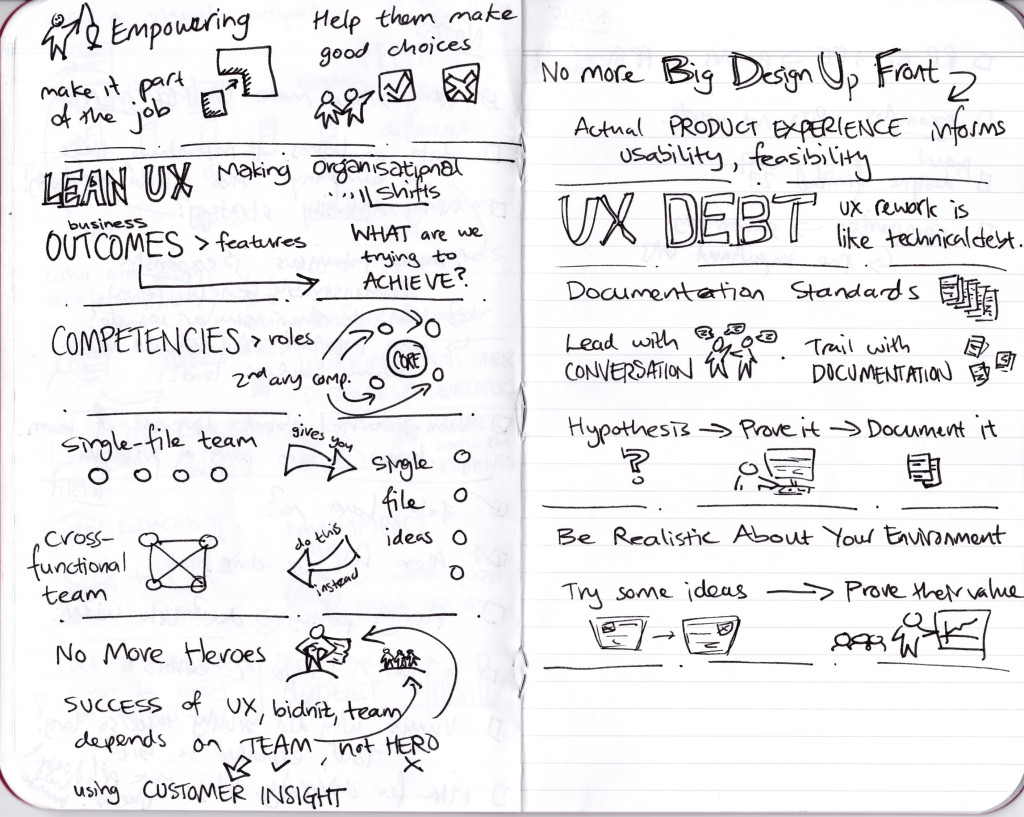 Empowering
make it part
of the job
Help them make
good choices
LEAN UX Making Organisational
Shifts
business
OUTCOMES > features
WHAT are we
trying to
ACHIEVE?
COMPETENCIES > roles
2nd ary comp.
CORE
single-file team
gives you
single
file
ideas
cross-
functional
team
do this
instead
No More Heroes
SUCCESS of UX, bidnit, team
depends on TEAM, not HERO
using CUSTOMER INSIGHT
No more Big Design Up Front
Actual PRODUCT EXPERIENCE informs
usability, feasibility
UX DEBT
ux rework is
like technical debt.
Documentation Standards
Lead with
CONVERSATION
Trail with
DOCUMENTATION
Hypothesis → Prove it → Document it
?
Be Realistic About Your Environment
Try some ideas → Prove their value